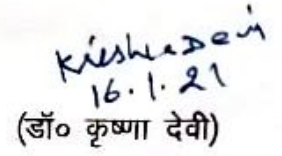 Krishna Devi
16.1.21
(डॉ० कृष्णा देवी)